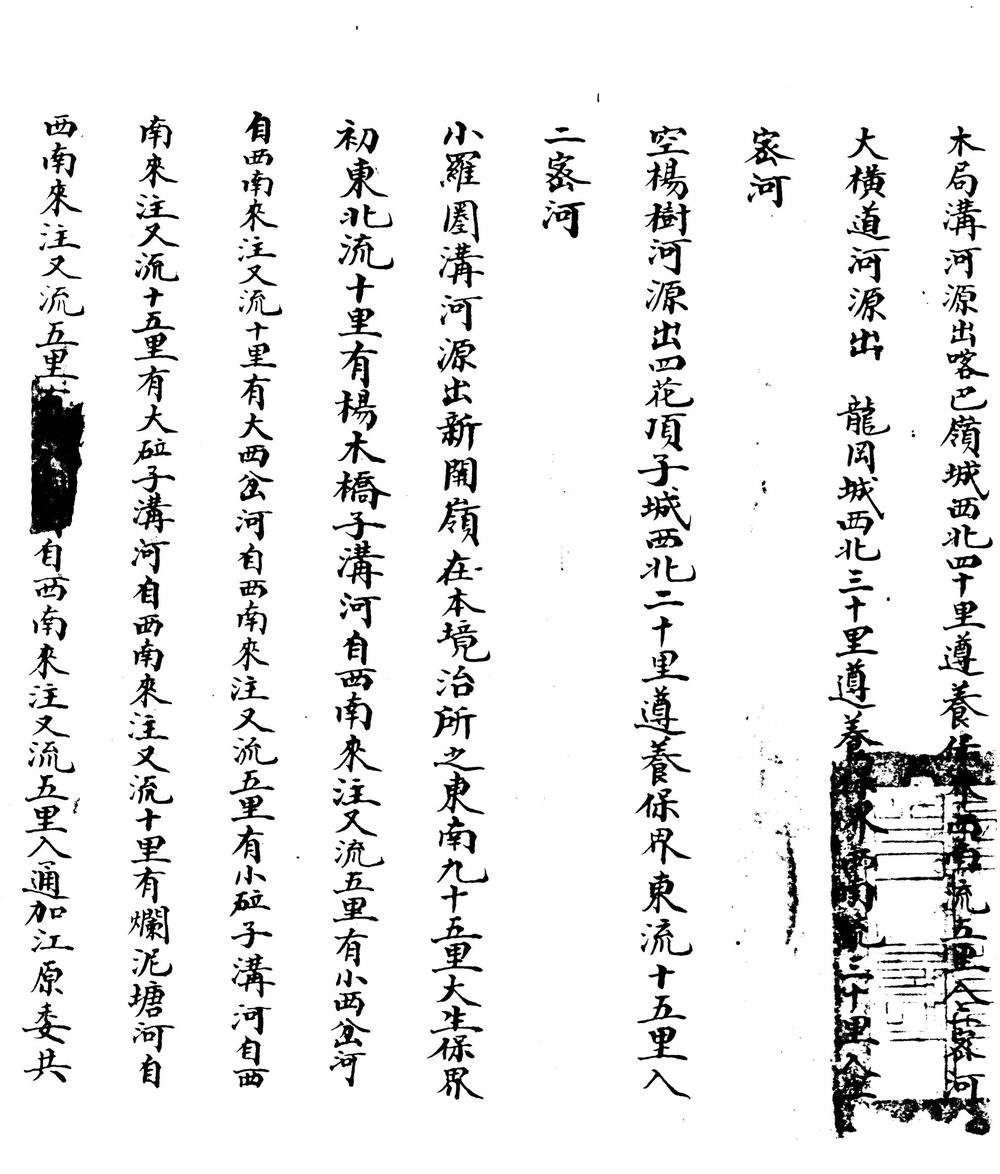 木局溝河源出喀巴嶺城西北四十里遵養保界西南流五里入二密河
大橫道河源出　龍岡城西北三十里遵養保界西南流三十里入
密河
空楊樹河源出四花頂子城西北二十里遵養保界東流十五里入
二密河
小羅圈溝河源出新開嶺在本境治所之東南九十五里大生保界
初東北流十里有楊木橋子溝河自西南來注又流五里有小西岔河
自西南來注又流十里有大西岔河自西南來注又流五里有小砬子溝河自西
南來注又流十五里有大砬子溝河自西南來注又流十里有爛泥塘河自
西南來注又流五里自西南來注又流五里入通加江原委共